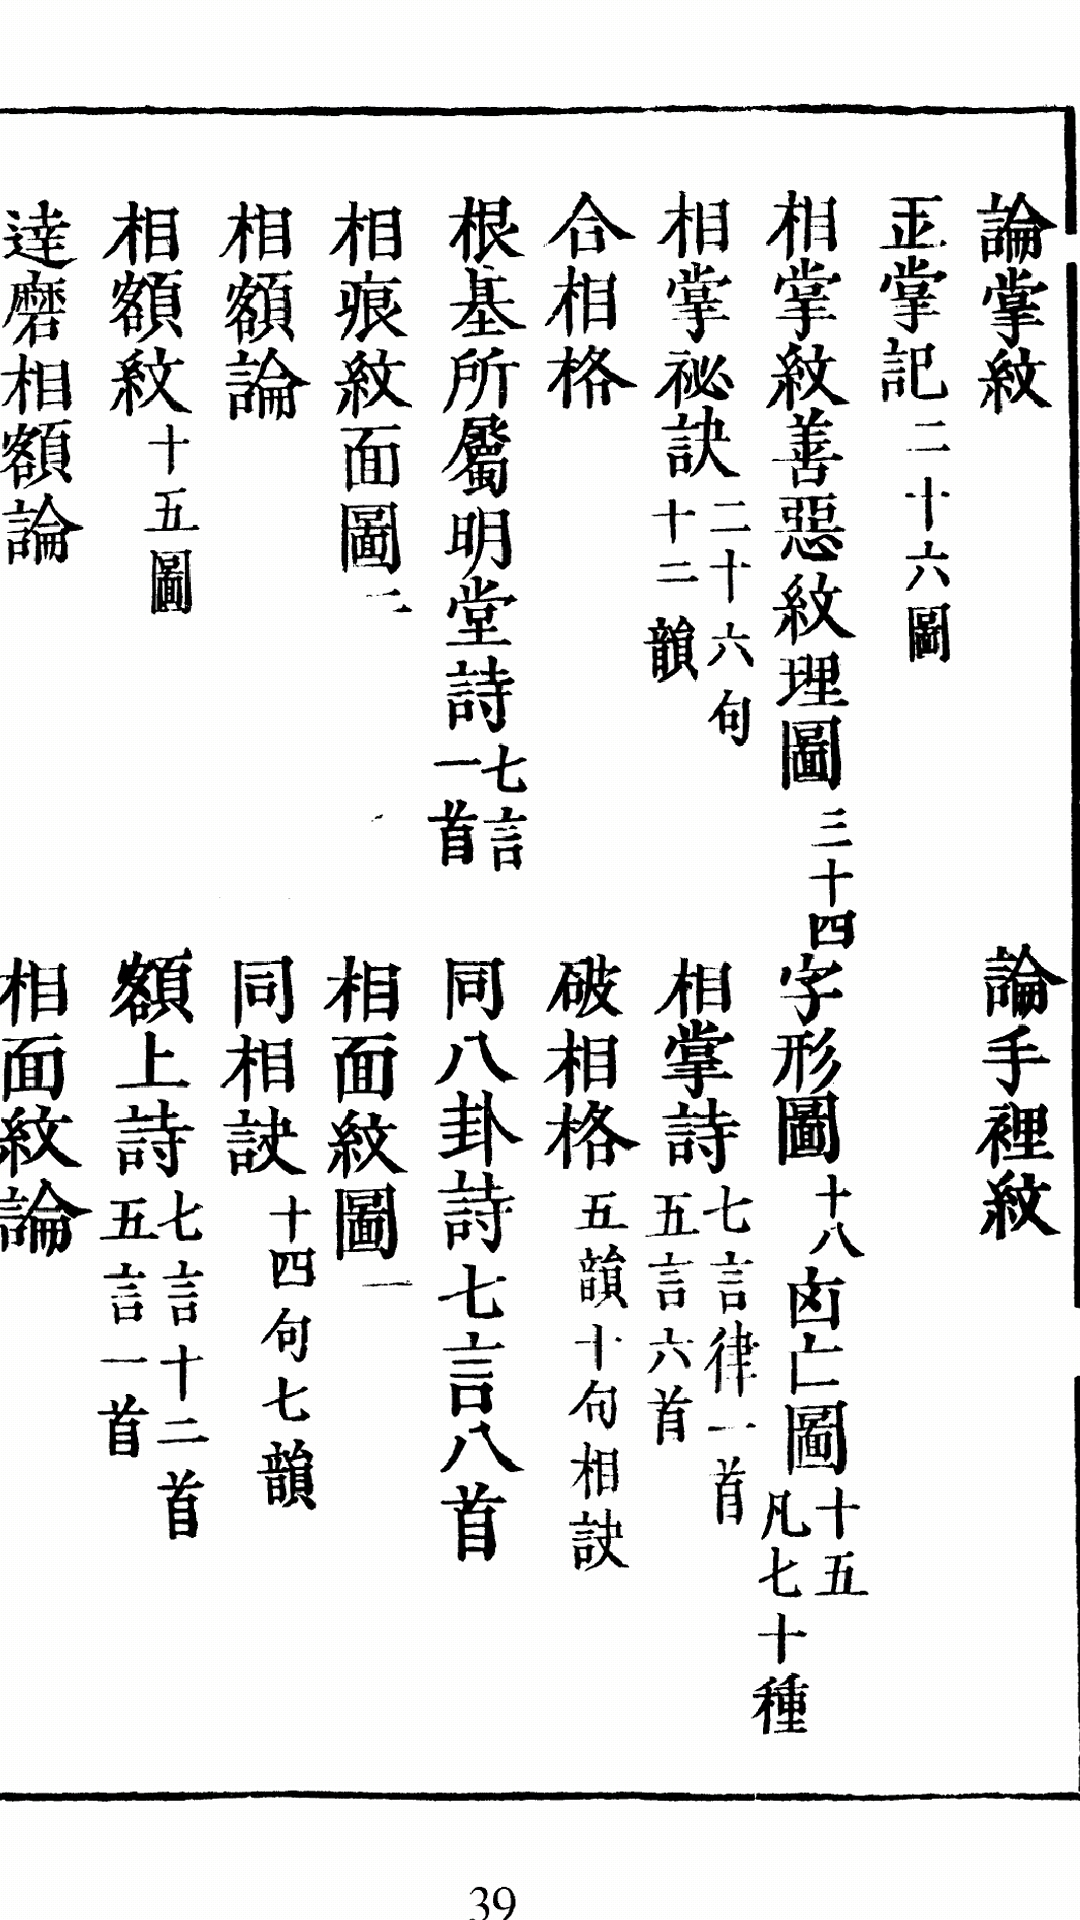 論掌紋　論手裡紋
玉掌記二十六圖
相掌紋善惡紋理圖三十四字形圖十八卤亡圖十五凡七十種
相掌祕訣二十六句十二韻　相掌詩七言律一首五言六首
合相格　破相格五韻十句相訣
根基所屬明堂詩七言一首　同八卦詩七言八首
相痕紋面圖二　相面紋圖一
相額論　同相訣十四句七韻
相額紋十五圖　額上詩七言十二首五言一首
達磨相額論　相面紋論
39